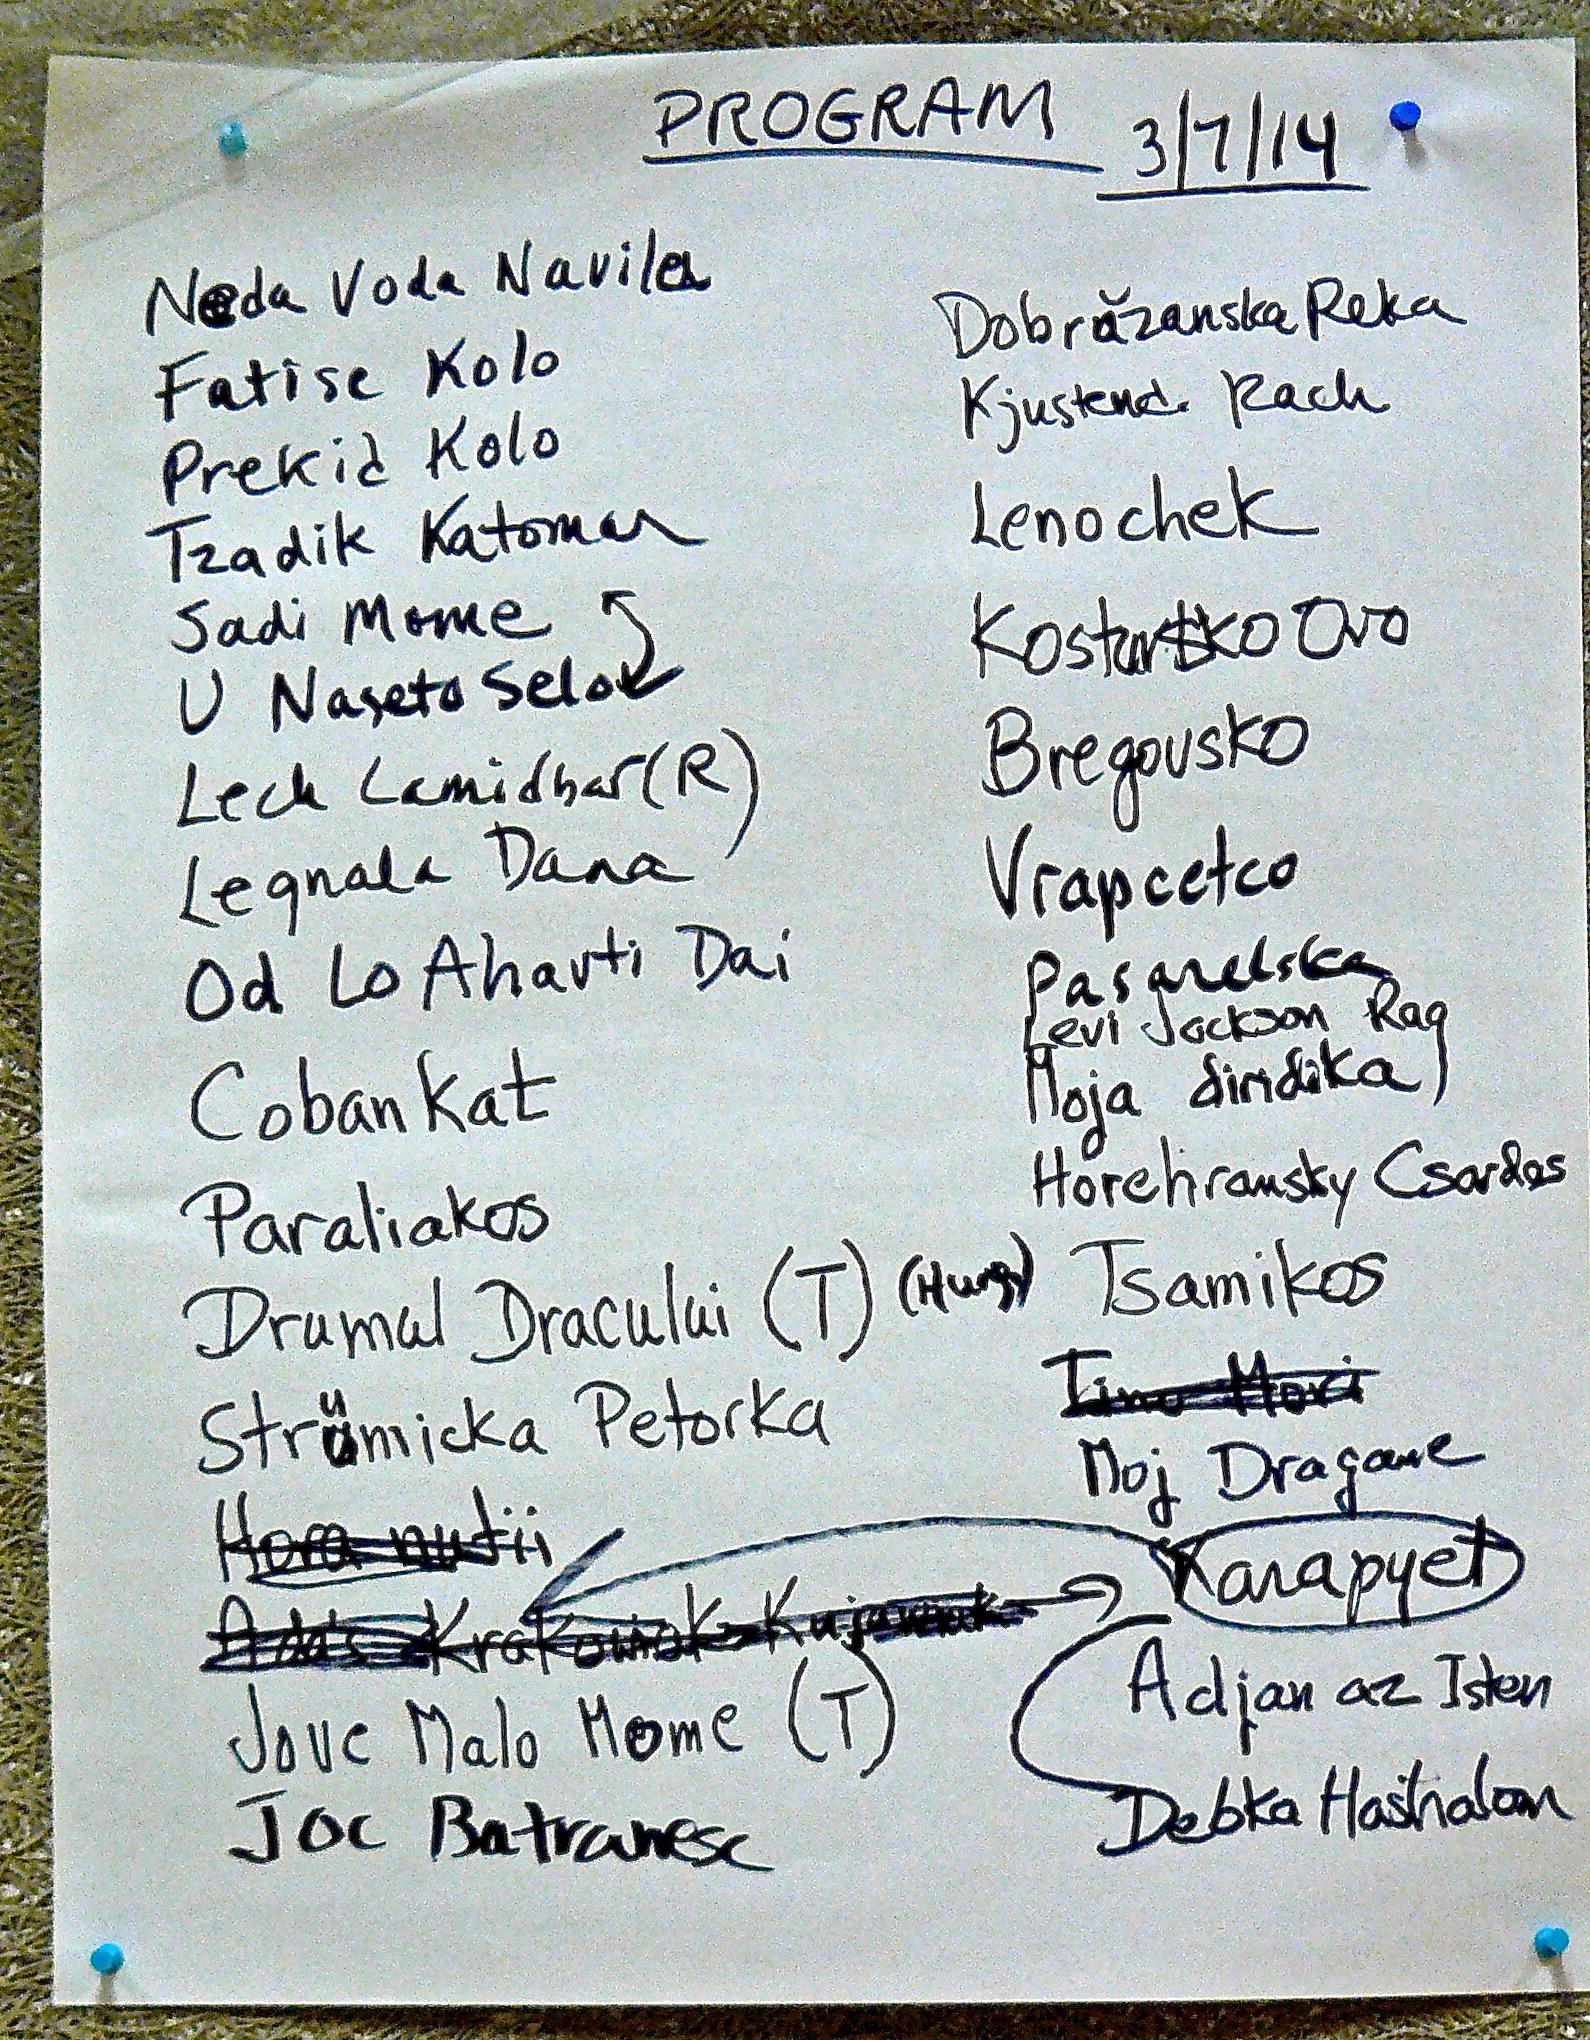 PROGRAM 3/7/14
Neda Voda Navila
Fatise Kolo
Prekid Kolo
Tzadik Katomar
Sadi Mome
U Naseto Selo
Lech Lamidbar (R)
Legnala Dana
Od Lo Ahavti Dai
Coban Kat
Paraliakos
Drumul Dracului (T) (Hung)
Strumicka Petorka
Hora nutii
Ada's Krakowiak Kujawiak
Jove Malo Mome (T)
Joc Batranesc
Dobrăzanska Reka
Kjustend. Rach
Lenochek
Kostursko Oro
Bregovsko
Vrapcetco
Pasarelska
Levi Jackson Rag
Moja diridika
Horehransky Csardas
Tsamikos
Tino Mori
Moj Dragane
Karapyet
Adjan az Isten
Debka Hashalom